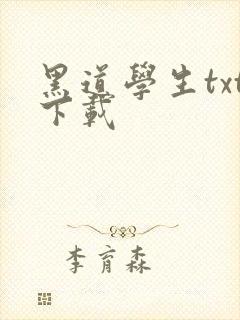 黑道學生txt
下載
李育森